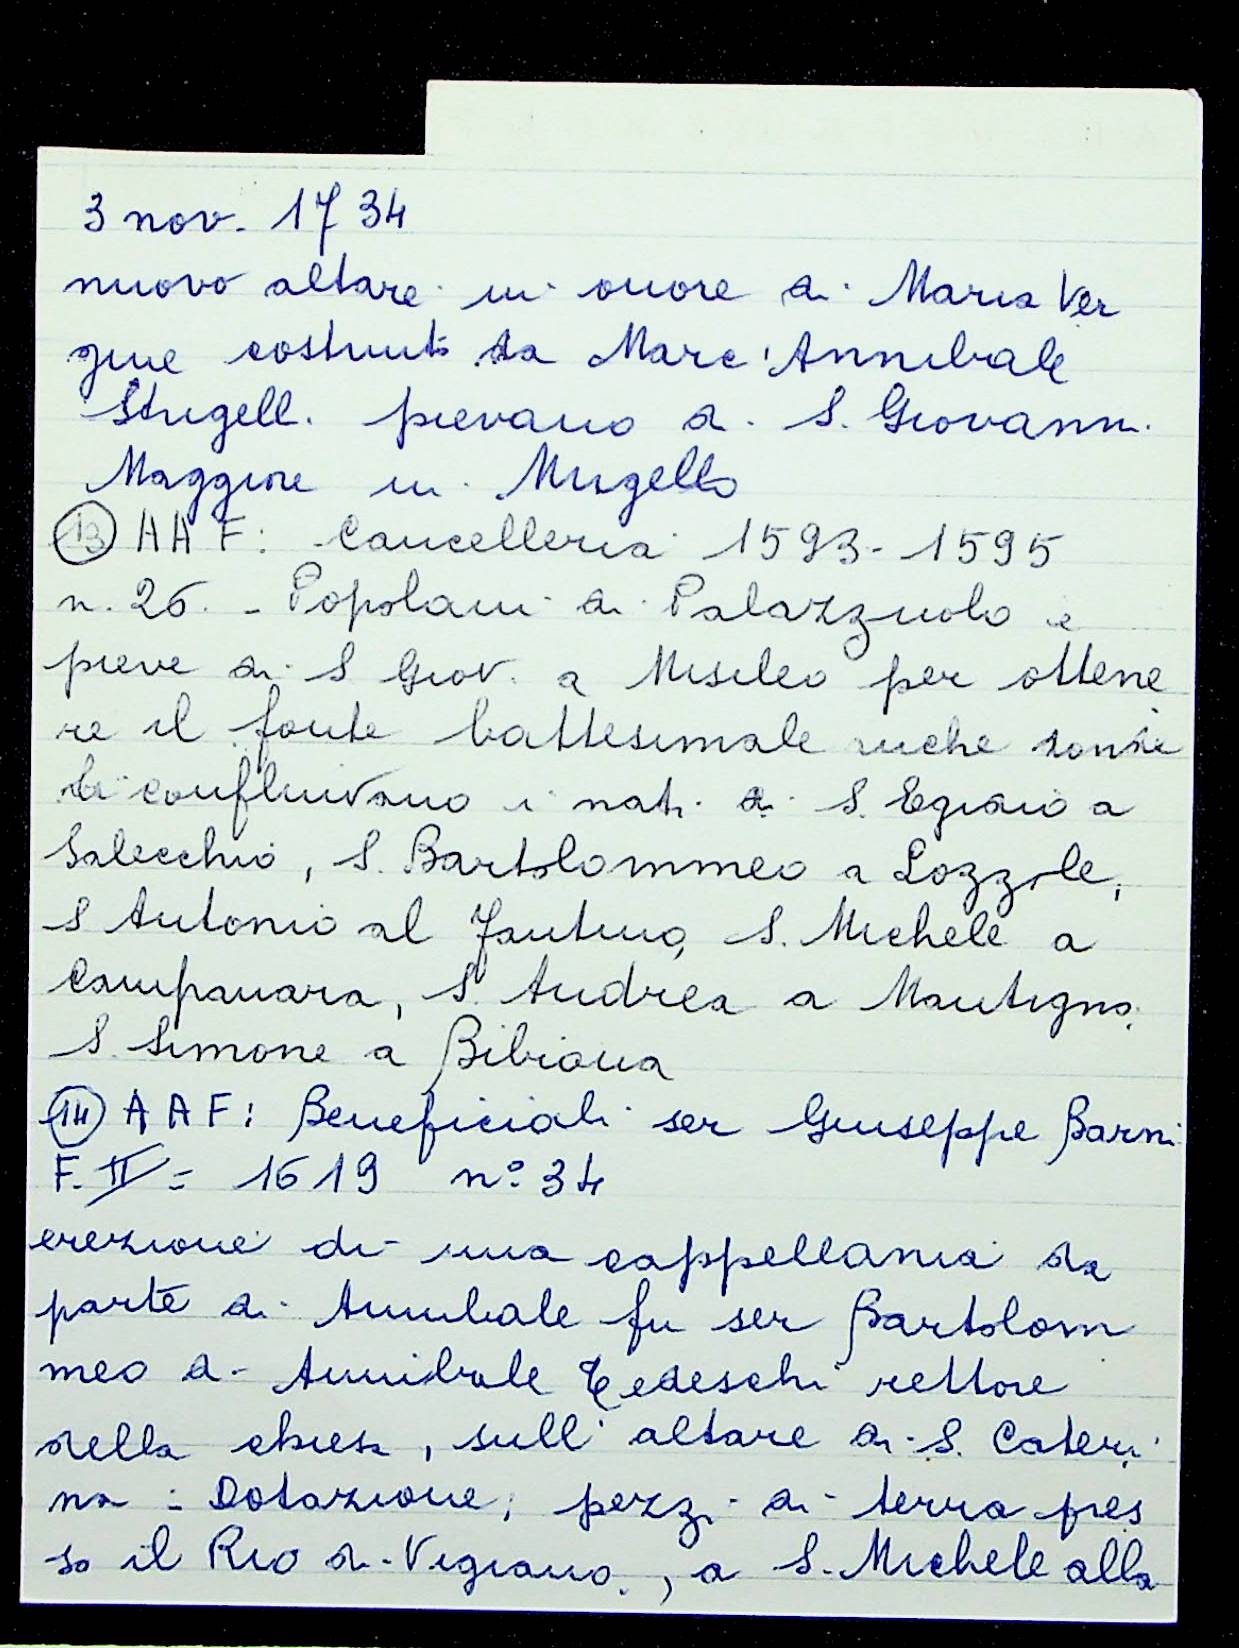 3 nov. 1734
nuovo altare in onore di Maria Ver
gine costruito da Marc'Annibale
Strigelli pievano di S. Giovanni
Maggiore in Mugello
13 AAF: Cancelleria 1593-1595
n. 26. - Popolani di Palazzuolo e
pieve di S Giov. a Misileo per ottene
re il fonte battesimale
confluivano i nati di S. Egidio a
Salecchio, S. Bartolommeo a Lozzole,
S Antonio al Fantino, S. Michele a
Campanara, S. Andrea a Mantigno,
S. Simone a Bibiana
14 AAF: Beneficiali ser Giuseppe Barni
F. II = 1619 n° 34
erezione di una cappellania da
parte di Annibale fu ser Bartolom
meo di Annibale Tedeschi rettore
della chiesa, sull'altare di S. Cateri
na : Dotazione; pezzi di terra pres
so il Rio di Vigiano, a S. Michele alla